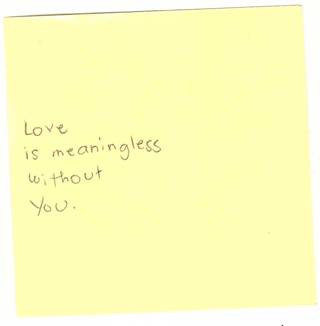 Love
is meaningless
without
You.